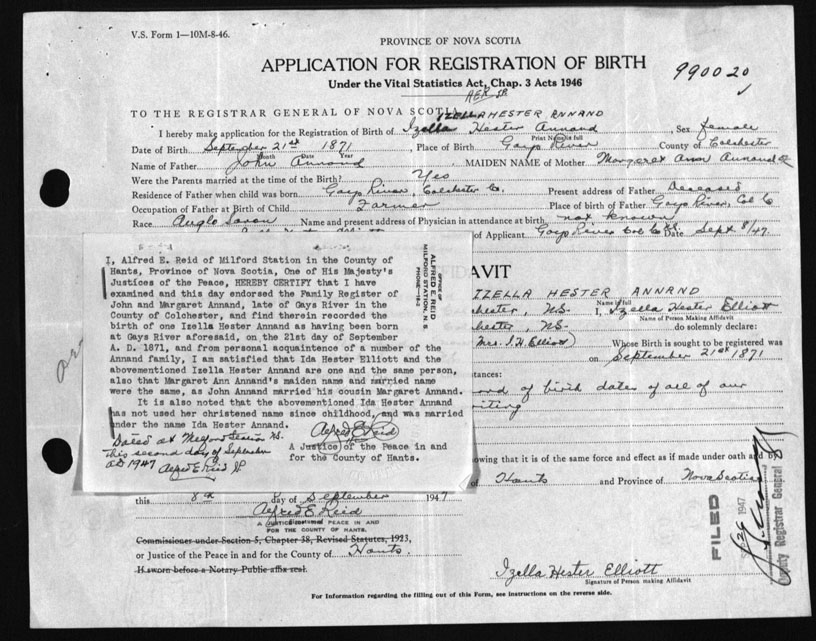 V.S. Form 1—10M-8-46.
PROVINCE OF NOVA SCOTIA
APPLICATION FOR REGISTRATION OF BIRTH
990020
Under the Vital Statistics Act, Chap. 3 Acts 1946
TO THE REGISTRAR GENERAL OF NOVA SCOTIA
IZELLA HESTER ANNAND
I hereby make application for the Registration of Birth of Izella Hester Annand, Sex female
Print Name in full
Date of Birth September 21st 1871, Place of Birth Gays River County of Colchester
Month Date Year
Name of Father John Annand MAIDEN NAME of Mother Margaret Ann Annand
Were the Parents married at the time of Birth? Yes
Residence of Father when child was born Gays River, Colchester Co. Present address of Father Deceased
Occupation of Father at Birth of Child Farmer Place of birth of Father Gays River, Col Co
Race Anglo Saxon Name and present address of Physician in attendance at birth not known
of Applicant Gays River Col Co Date Sept 8/47
I, Alfred E. Reid of Milford Station in the County of
Hants, Province of Nova Scotia, One of His Majesty's
Justices of the Peace, HEREBY CERTIFY that I have
examined and this day endorsed the Family Register of
John and Margaret Annand, late of Gays River in the
County of Colchester, and find therein recorded the
birth of one Izella Hester Annand as having been born
at Gays River aforesaid, on the 21st day of September
A. D. 1871, and from personal acquaintence of a number of the
Annand family, I am satisfied that Ida Hester Elliott and the
abovementioned Izella Hester Annand are one and the same person,
also that Margaret Ann Annand's maiden name and married name
were the same, as John Annand married his cousin Margaret Annand.
It is also noted that the abovementioned Ida Hester Annand
has not used her christened name since childhood, and was married
under the name Ida Hester Annand.
Dated at Milford Station N.S.
this second day of September
AD 1947
Alfred E Reid JP
Alfred E Reid
A Justice of the Peace in and
for the County of Hants.
OFFICE OF
ALFRED E. REID
MILFORD STATION, N. S.
PHONE
IDAVIT
IZELLA HESTER ANNAND
Name in full
hester, NS. I, Izella Hester Elliott
Name of Person Making Affidavit
hester, NS do solemnly declare:
Mrs. I. H. Elliott) Whose birth is sought to be registered was
on September 21st 1871
stances:
ord of birth dates of all of our
writing
owing that it is of the same force and effect as if made under oath and by
of Hants and Province of Nova Scotia
this 8th day of September 1947
Alfred E Reid
A JUSTICE OF THE PEACE IN AND
FOR THE COUNTY OF HANTS.
Commissioner under Section 5, Chapter 38, Revised Statutes, 1923,
or Justice of the Peace in and for the County of Hants.
If sworn before a Notary Public affix seal.
FILED
1947
Deputy Registrar General
Izella Hester Elliott
Signature of Person making Affidavit
For Information regarding the filling out of this Form, see instructions on the reverse side.